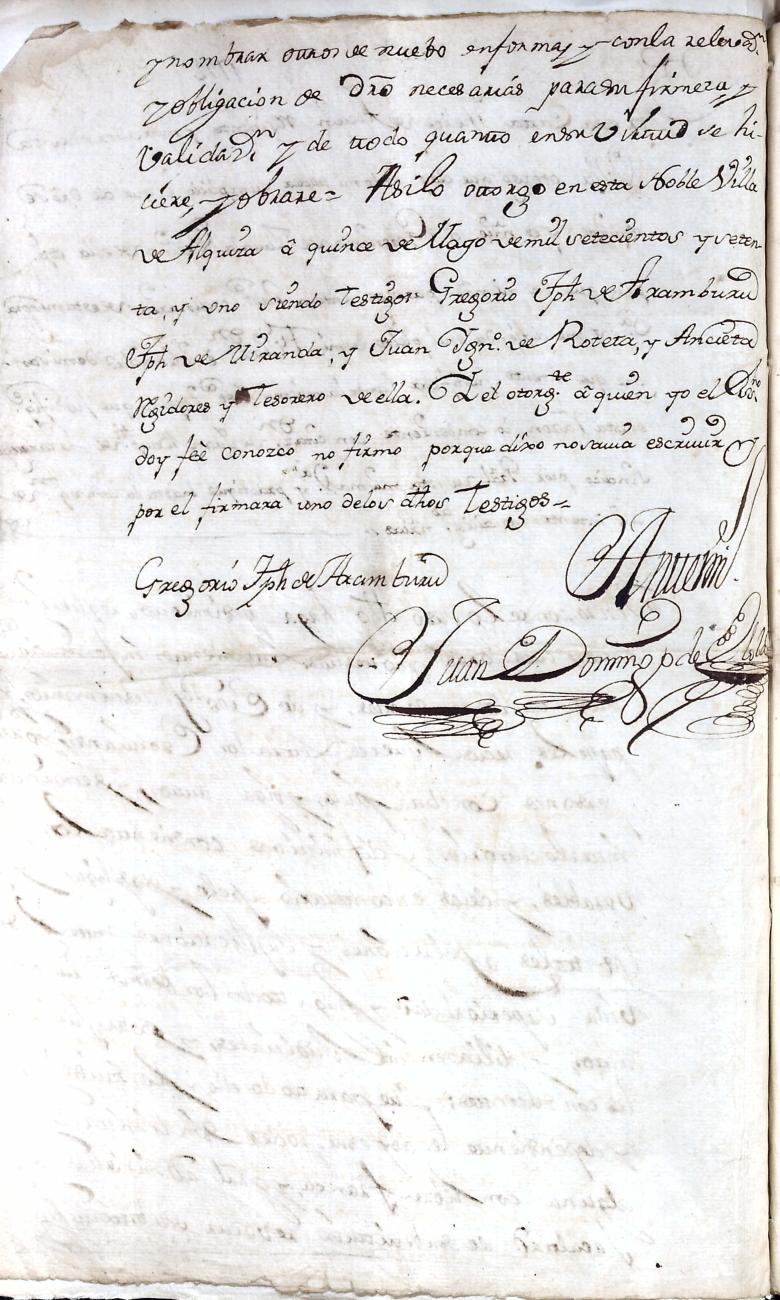 y nombrar ottros de nuebo en forma, y con la relevaz.n
y obligacion de Dró necesarias para su firmeza, y
validaz.n y de ttodo quantto en su virtud se hi-
ciere, y obrare= Asi lo ottorgo en esta Noble Villa
de Alquiza â quince de Maýo de mil settecientos y seten-
ta, y uno siendo Testigos Gregorio Jph de Aramburu
Jph de Miranda, y Juan Ygn.º de Roteta, y Ancieta
Rexidores y Tesorero de ella. Y el otorg.te â quien yo el Ess.no
doy feê conozco no firmo porque dixo no savia escrivir
por el firmara uno de los dhos Testigos=
Gregorio Jph de Aramburu
Antemi
Juan Domingo de